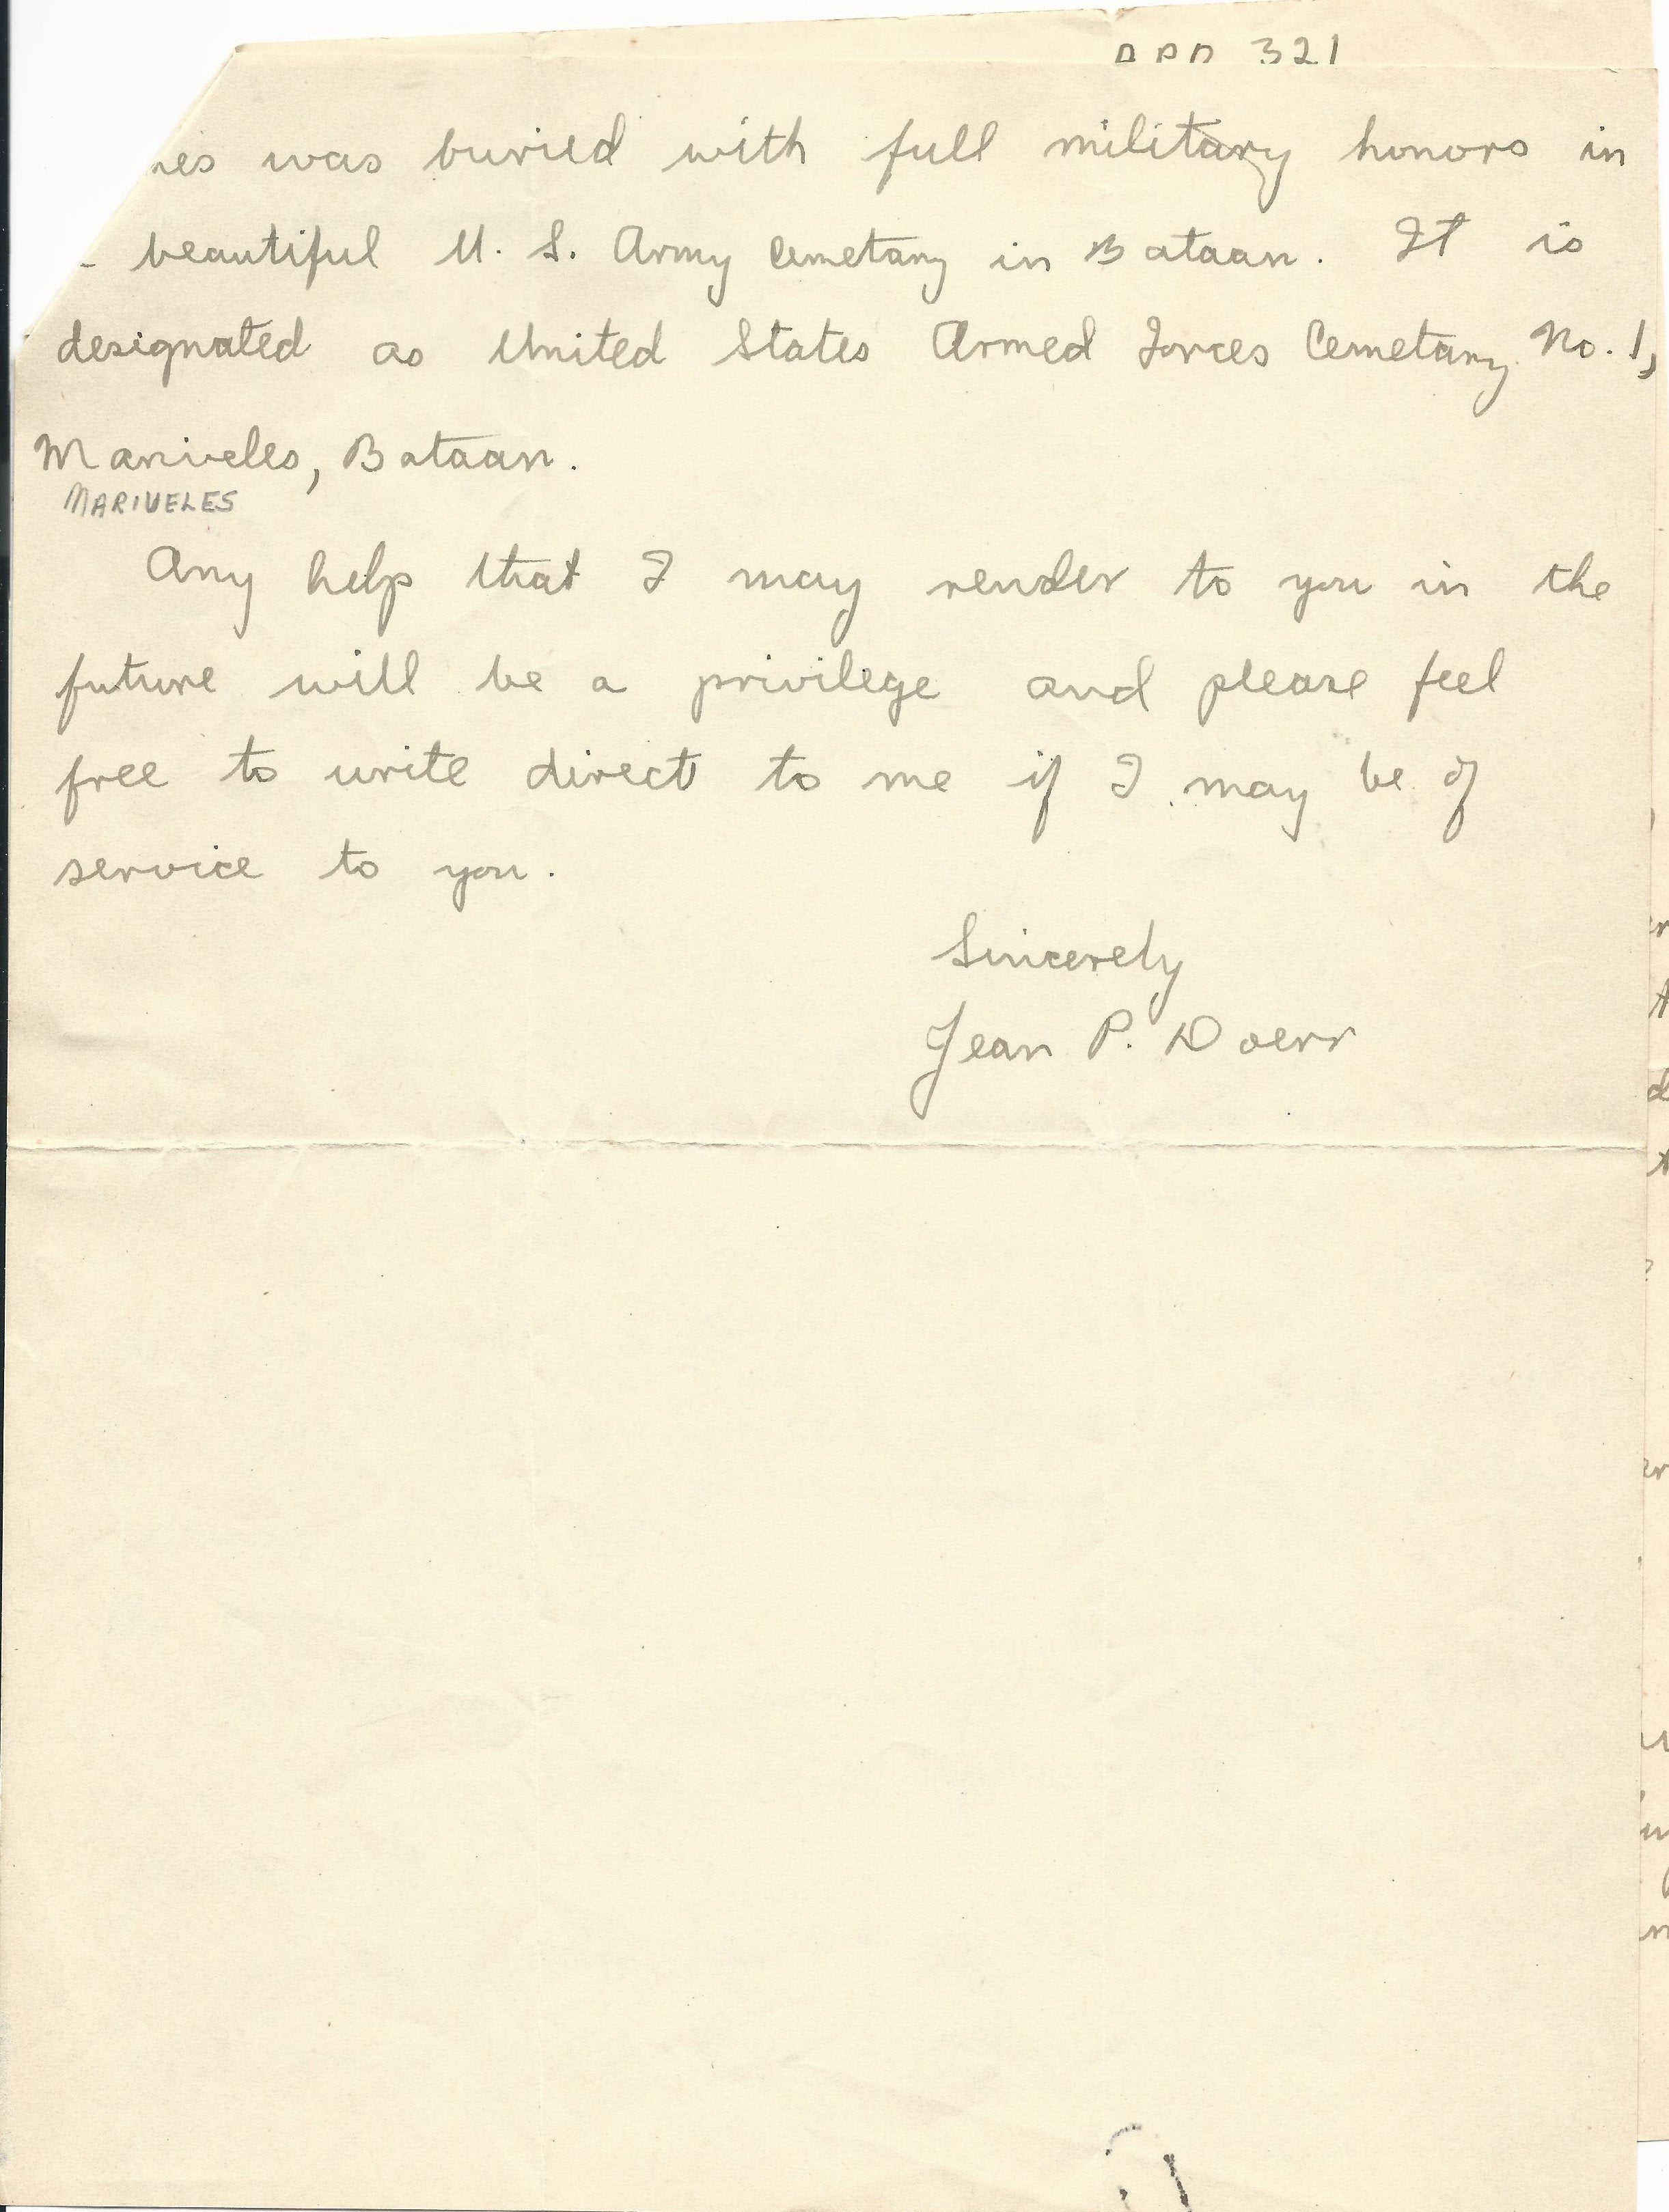 321
was buried with full military honors in
beautiful U. S. Army Cemetany in Bataan. It is
designated as United States Armed Forces Cemetany No. 1,
Mariveles, Bataan.
MARIVELES
Any help that I may render to you in the
future will be a privilege and please feel
free to write direct to me if I may be of
service to you.
Sincerely
Jean P. Doerr